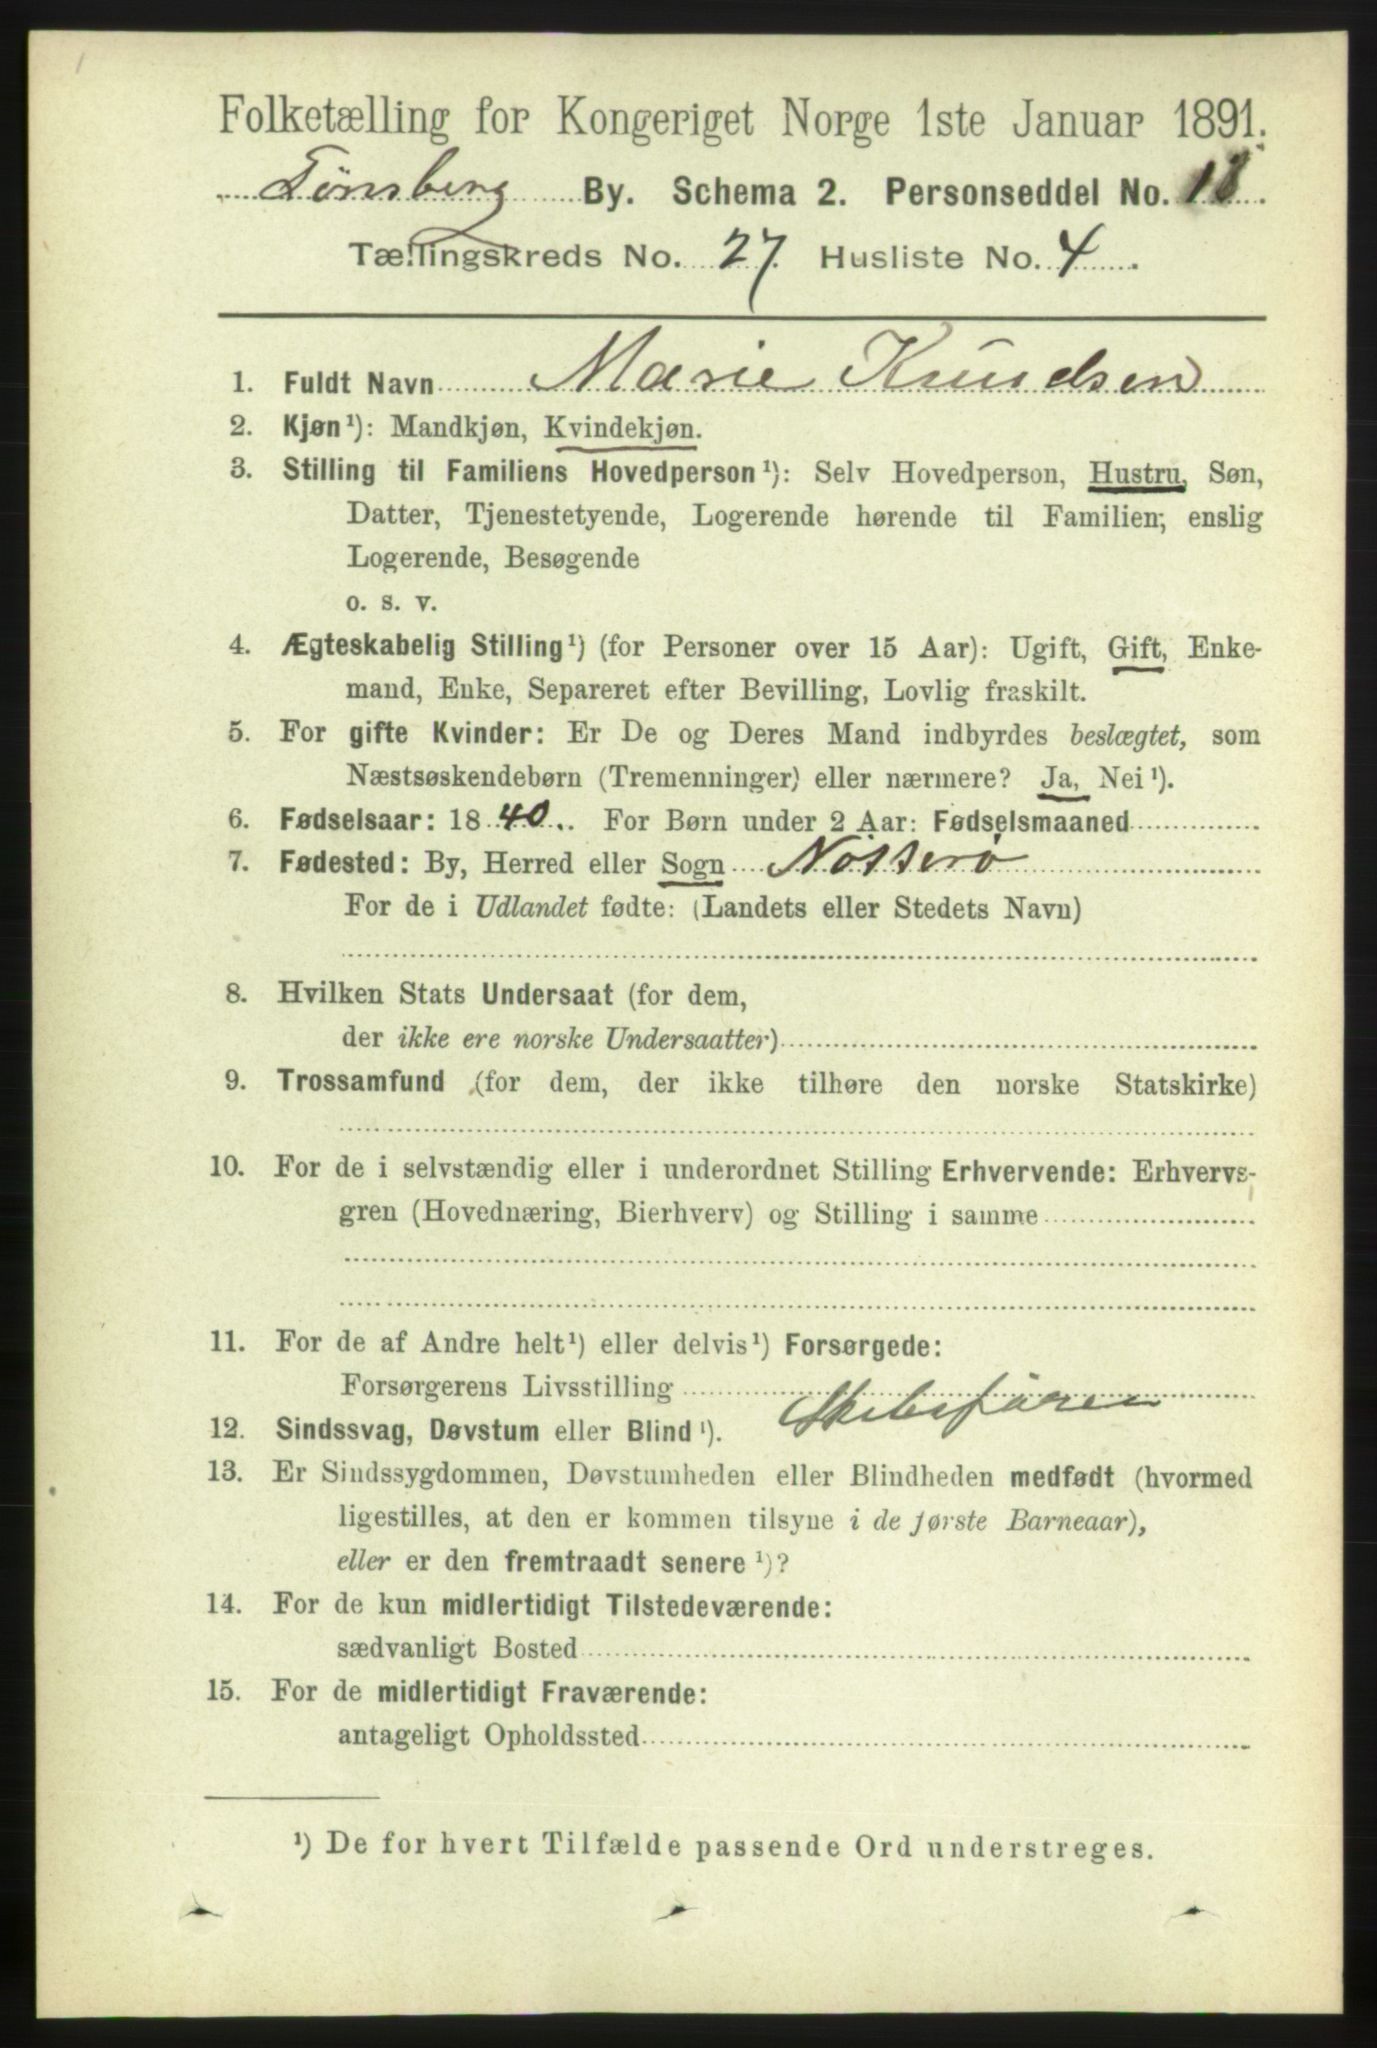 Folketælling for Kongeriget Norge 1ste Januar 1891.
Tønsberg By. Schema 2. Personseddel No. 18.
Tællingskreds No. 27 Husliste No. 4.
1. Fuldt Navn Marie Knudsen
2. Kjøn¹): Mandkjøn, Kvindekjøn.
3. Stilling til Familiens Hovedperson¹): Selv Hovedperson, Hustru, Søn,
Datter, Tjenestetyende, Logerende hørende til Familien; enslig
Logerende, Besøgende
o. s. v.
4. Ægteskabelig Stilling¹) (for Personer over 15 Aar): Ugift, Gift, Enke-
mand, Enke, Separeret efter Bevilling, Lovlig fraskilt.
5. For gifte Kvinder: Er De og Deres Mand indbyrdes beslægtet, som
Næstsøskendebørn (Tremenninger) eller nærmere? Ja, Nei¹).
6. Fødselsaar: 1840. For Børn under 2 Aar: Fødselsmaaned
7. Fødested: By, Herred eller Sogn Nøtterø
For de i Udlandet fødte: (Landets eller Stedets Navn)
8. Hvilken Stats Undersaat (for dem,
der ikke ere norske Undersaatter)
9. Trossamfund (for dem, der ikke tilhøre den norske Statskirke)
10. For de i selvstændig eller i underordnet Stilling Erhvervende: Erhvervs-
gren (Hovednæring, Bierhverv) og Stilling i samme
11. For de af Andre helt¹) eller delvis¹) Forsørgede:
Forsørgerens Livsstilling Skibsfører
12. Sindssvag, Døvstum eller Blind¹).
13. Er Sindssygdommen, Døvstumheden eller Blindheden medfødt (hvormed
ligestilles, at den er kommen tilsyne i de første Barneaar),
eller er den fremtraadt senere¹)?
14. For de kun midlertidigt Tilstedeværende:
sædvanligt Bosted
15. For de midlertidigt Fraværende:
antageligt Opholdssted
¹) De for hvert Tilfælde passende Ord understreges.